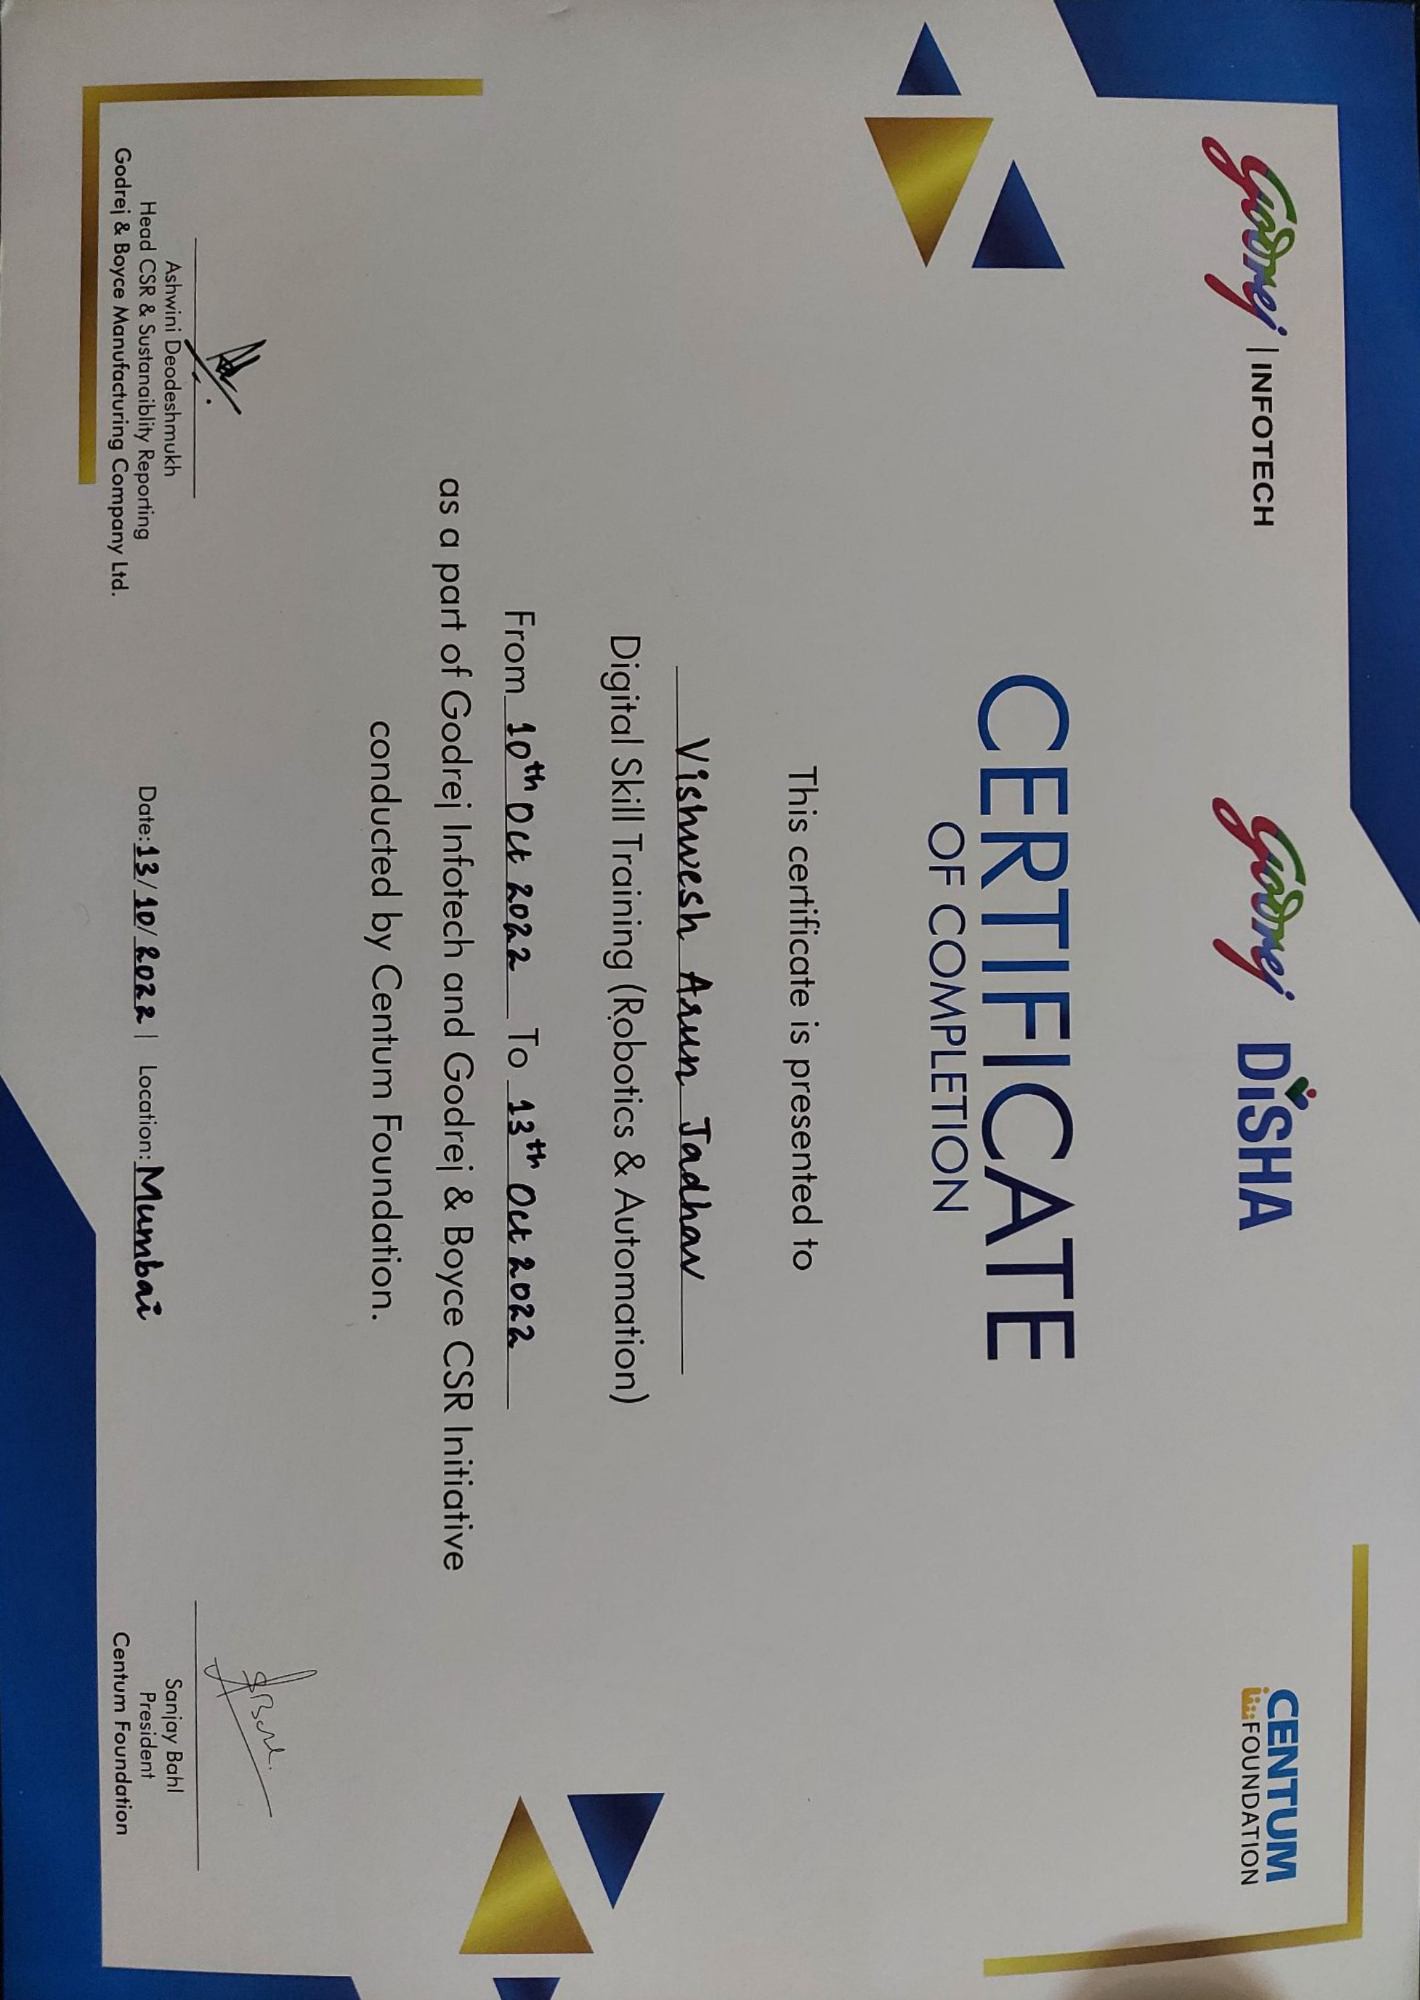 Godrej | INFOTECH
Godrej DiSHA
CENTUM
FOUNDATION
CERTIFICATE
OF COMPLETION
This certificate is presented to
Vishwesh Arun Jadhav
Digital Skill Training (Robotics & Automation)
From 10th Oct 2022 To 13th Oct 2022
as a part of Godrej Infotech and Godrej & Boyce CSR Initiative
conducted by Centum Foundation.
Ashwini Deodeshmukh
Head CSR & Sustanaiblity Reporting
Godrej & Boyce Manufacturing Company Ltd.
Date: 13/10/2022 | Location: Mumbai
Sanjay Bahl
President
Centum Foundation